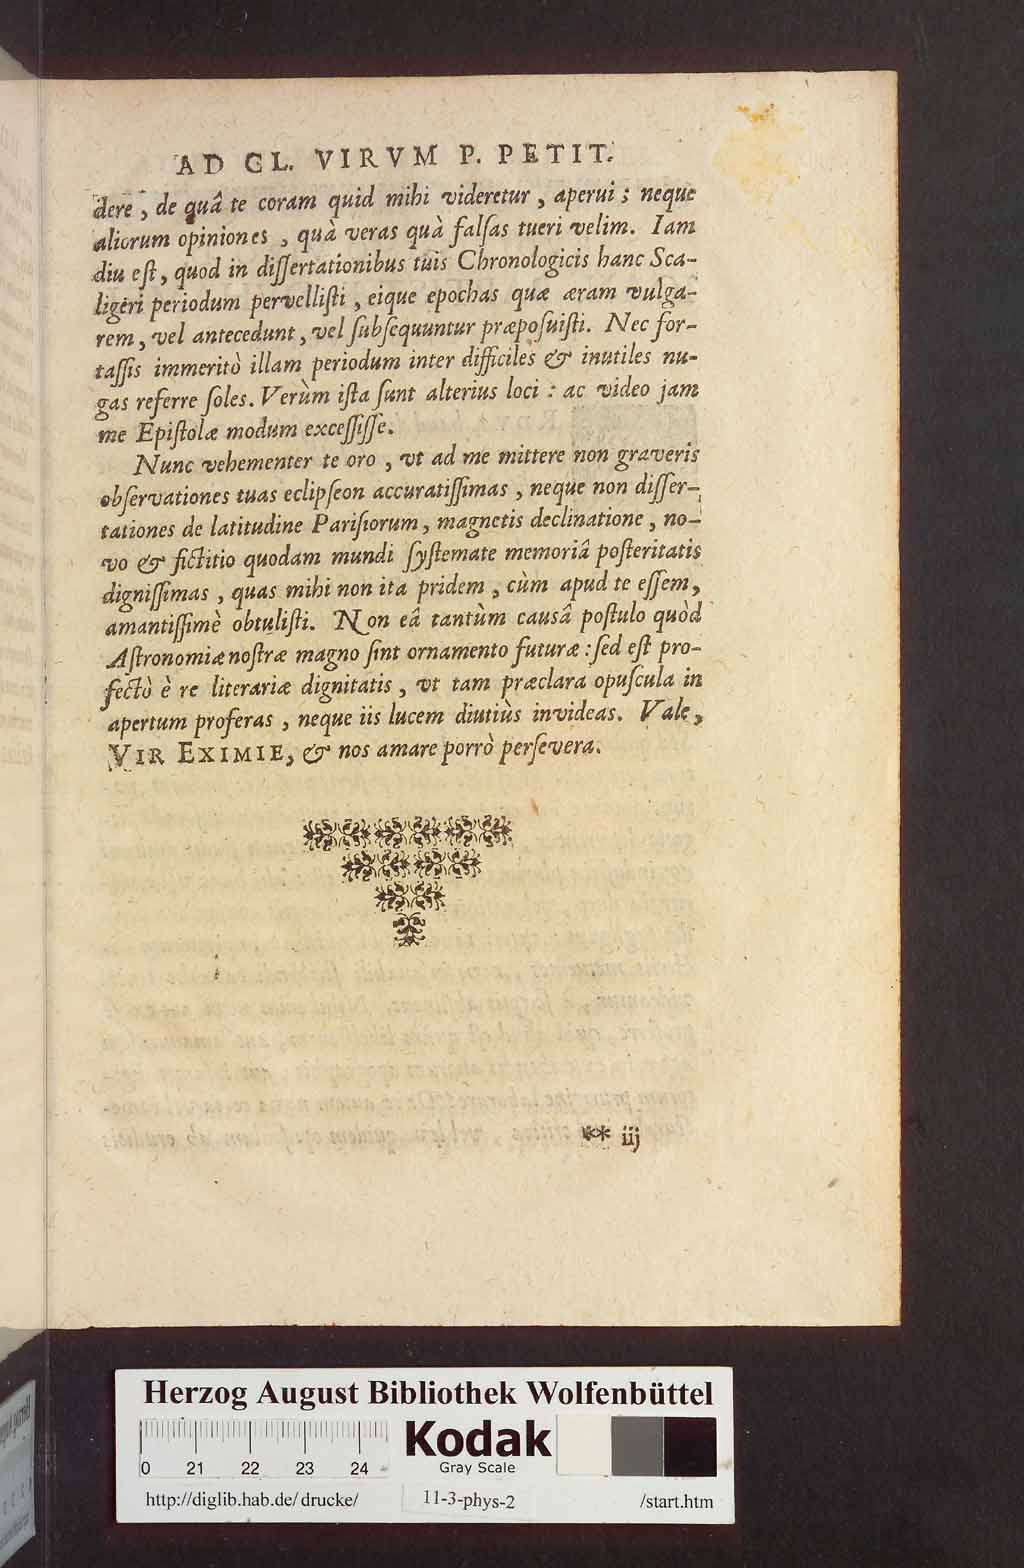 AD CL. VIRVM P. PETIT.
dere, de quâ te coram quid mihi videretur, aperui; neque
aliorum opiniones, quà veras quà falſas tueri velim. Iam
diu eſt, quod in diſſertationibus tuis Chronologicis hanc Sca-
ligeri periodum pervelliſti, eique epochas quæ æram vulga-
rem, vel antecedunt, vel ſubſequuntur præpoſuiſti. Nec for-
taſſis immeritò illam periodum inter difficiles & inutiles nu-
gas referre ſoles. Verùm iſta ſunt alterius loci: ac video jam
me Epiſtolæ modum exceſſiſſe.
Nunc vehementer te oro, vt ad me mittere non graveris
obſervationes tuas eclipſeon accuratiſſimas, neque non diſſer-
tationes de latitudine Pariſiorum, magnetis declinatione, no-
vo & fictitio quodam mundi ſyſtemate memoriâ poſteritatis
digniſſimas, quas mihi non ita pridem, cùm apud te eſſem,
amantiſſimè obtuliſti. Non eâ tantùm causâ poſtulo quòd
Aſtronomiæ noſtræ magno ſint ornamento futuræ: ſed eſt pro-
fectò è re literariæ dignitatis, vt tam præclara opuſcula in
apertum proferas, neque iis lucem diutiùs invideas. Vale,
VIR EXIMIE, & nos amare porrò perſevera.
** iij
Herzog August Bibliothek Wolfenbüttel
0 21 22 23 24
Kodak
Gray Scale
http://diglib.hab.de/drucke/ 11-3-phys-2 /start.htm